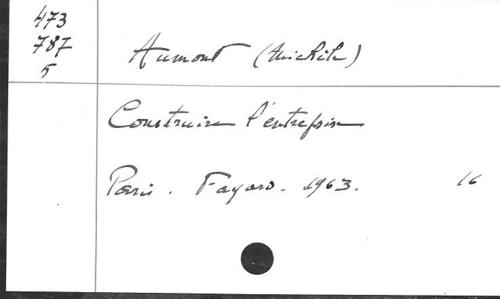 473
787
5
Aumont (Michèle)
Construire l'entreprise
Paris. Fayard. 1963. 16